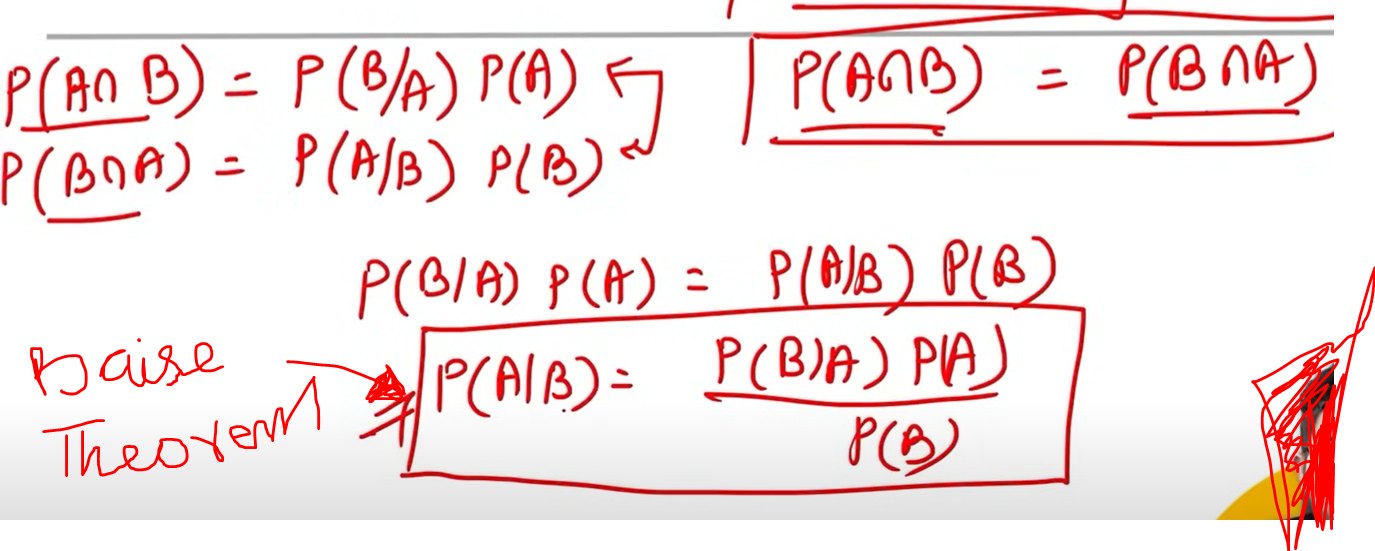 P(A∩B) = P(B/A) P(A)
P(A∩B) = P(B∩A)
P(B∩A) = P(A/B) P(B)
P(B/A) P(A) = P(A/B) P(B)
Baise
Theorem
P(A|B) = P(B|A) P(A)
P(B)